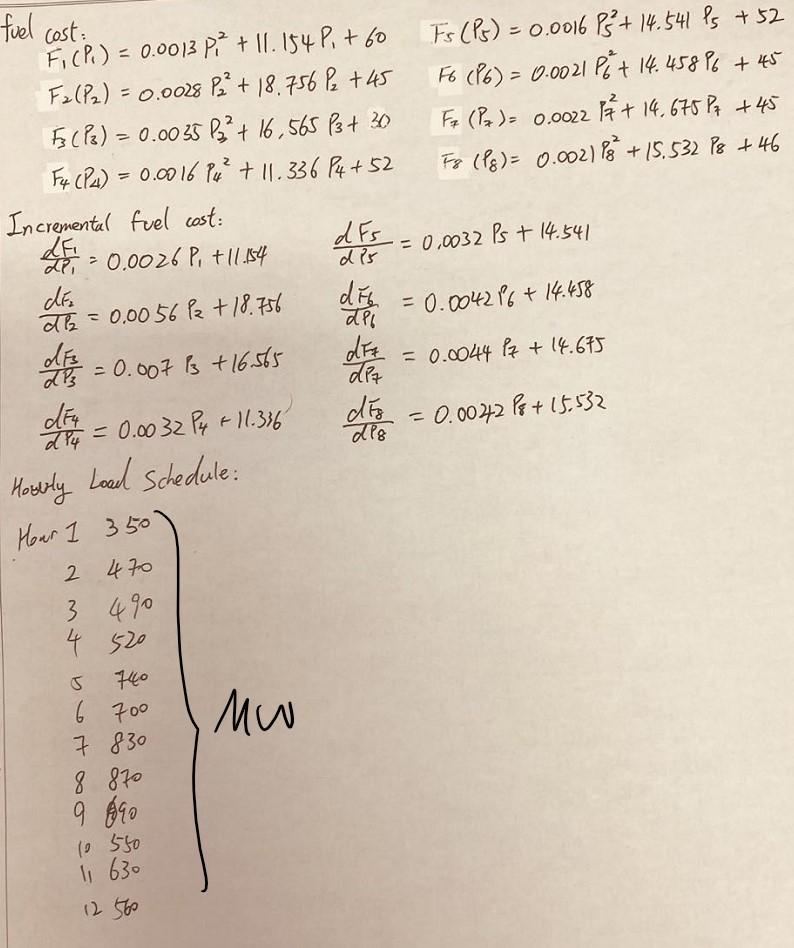 fuel cost:
F₁(P₁) = 0.0013 P₁² + 11.154 P₁ + 60
F₂(P₂) = 0.0028 P₂² + 18.756 P₂ + 45
F₃(P₃) = 0.0035 P₃² + 16,565 P₃ + 30
F₄(P₄) = 0.0016 P₄² + 11.336 P₄ + 52
F₅(P₅) = 0.0016 P₅² + 14.541 P₅ + 52
F₆(P₆) = 0.0021 P₆² + 14.458 P₆ + 45
F₇(P₇) = 0.0022 P₇² + 14,675 P₇ + 45
F₈(P₈) = 0.0021 P₈² + 15.532 P₈ + 46
Incremental fuel cost:
dF₁/dP₁ = 0.0026 P₁ + 11.154
dF₂/dP₂ = 0.0056 P₂ + 18.756
dF₃/dP₃ = 0.007 P₃ + 16.565
dF₄/dP₄ = 0.0032 P₄ + 11.336
dF₅/dP₅ = 0.0032 P₅ + 14.541
dF₆/dP₆ = 0.0042 P₆ + 14.458
dF₇/dP₇ = 0.0044 P₇ + 14.675
dF₈/dP₈ = 0.0042 P₈ + 15.532
Hourly Load Schedule:
Hour 1 350
2 470
3 490
4 520
5 740
6 700
7 830
8 870
9 90
10 550
11 630
12 560
MW